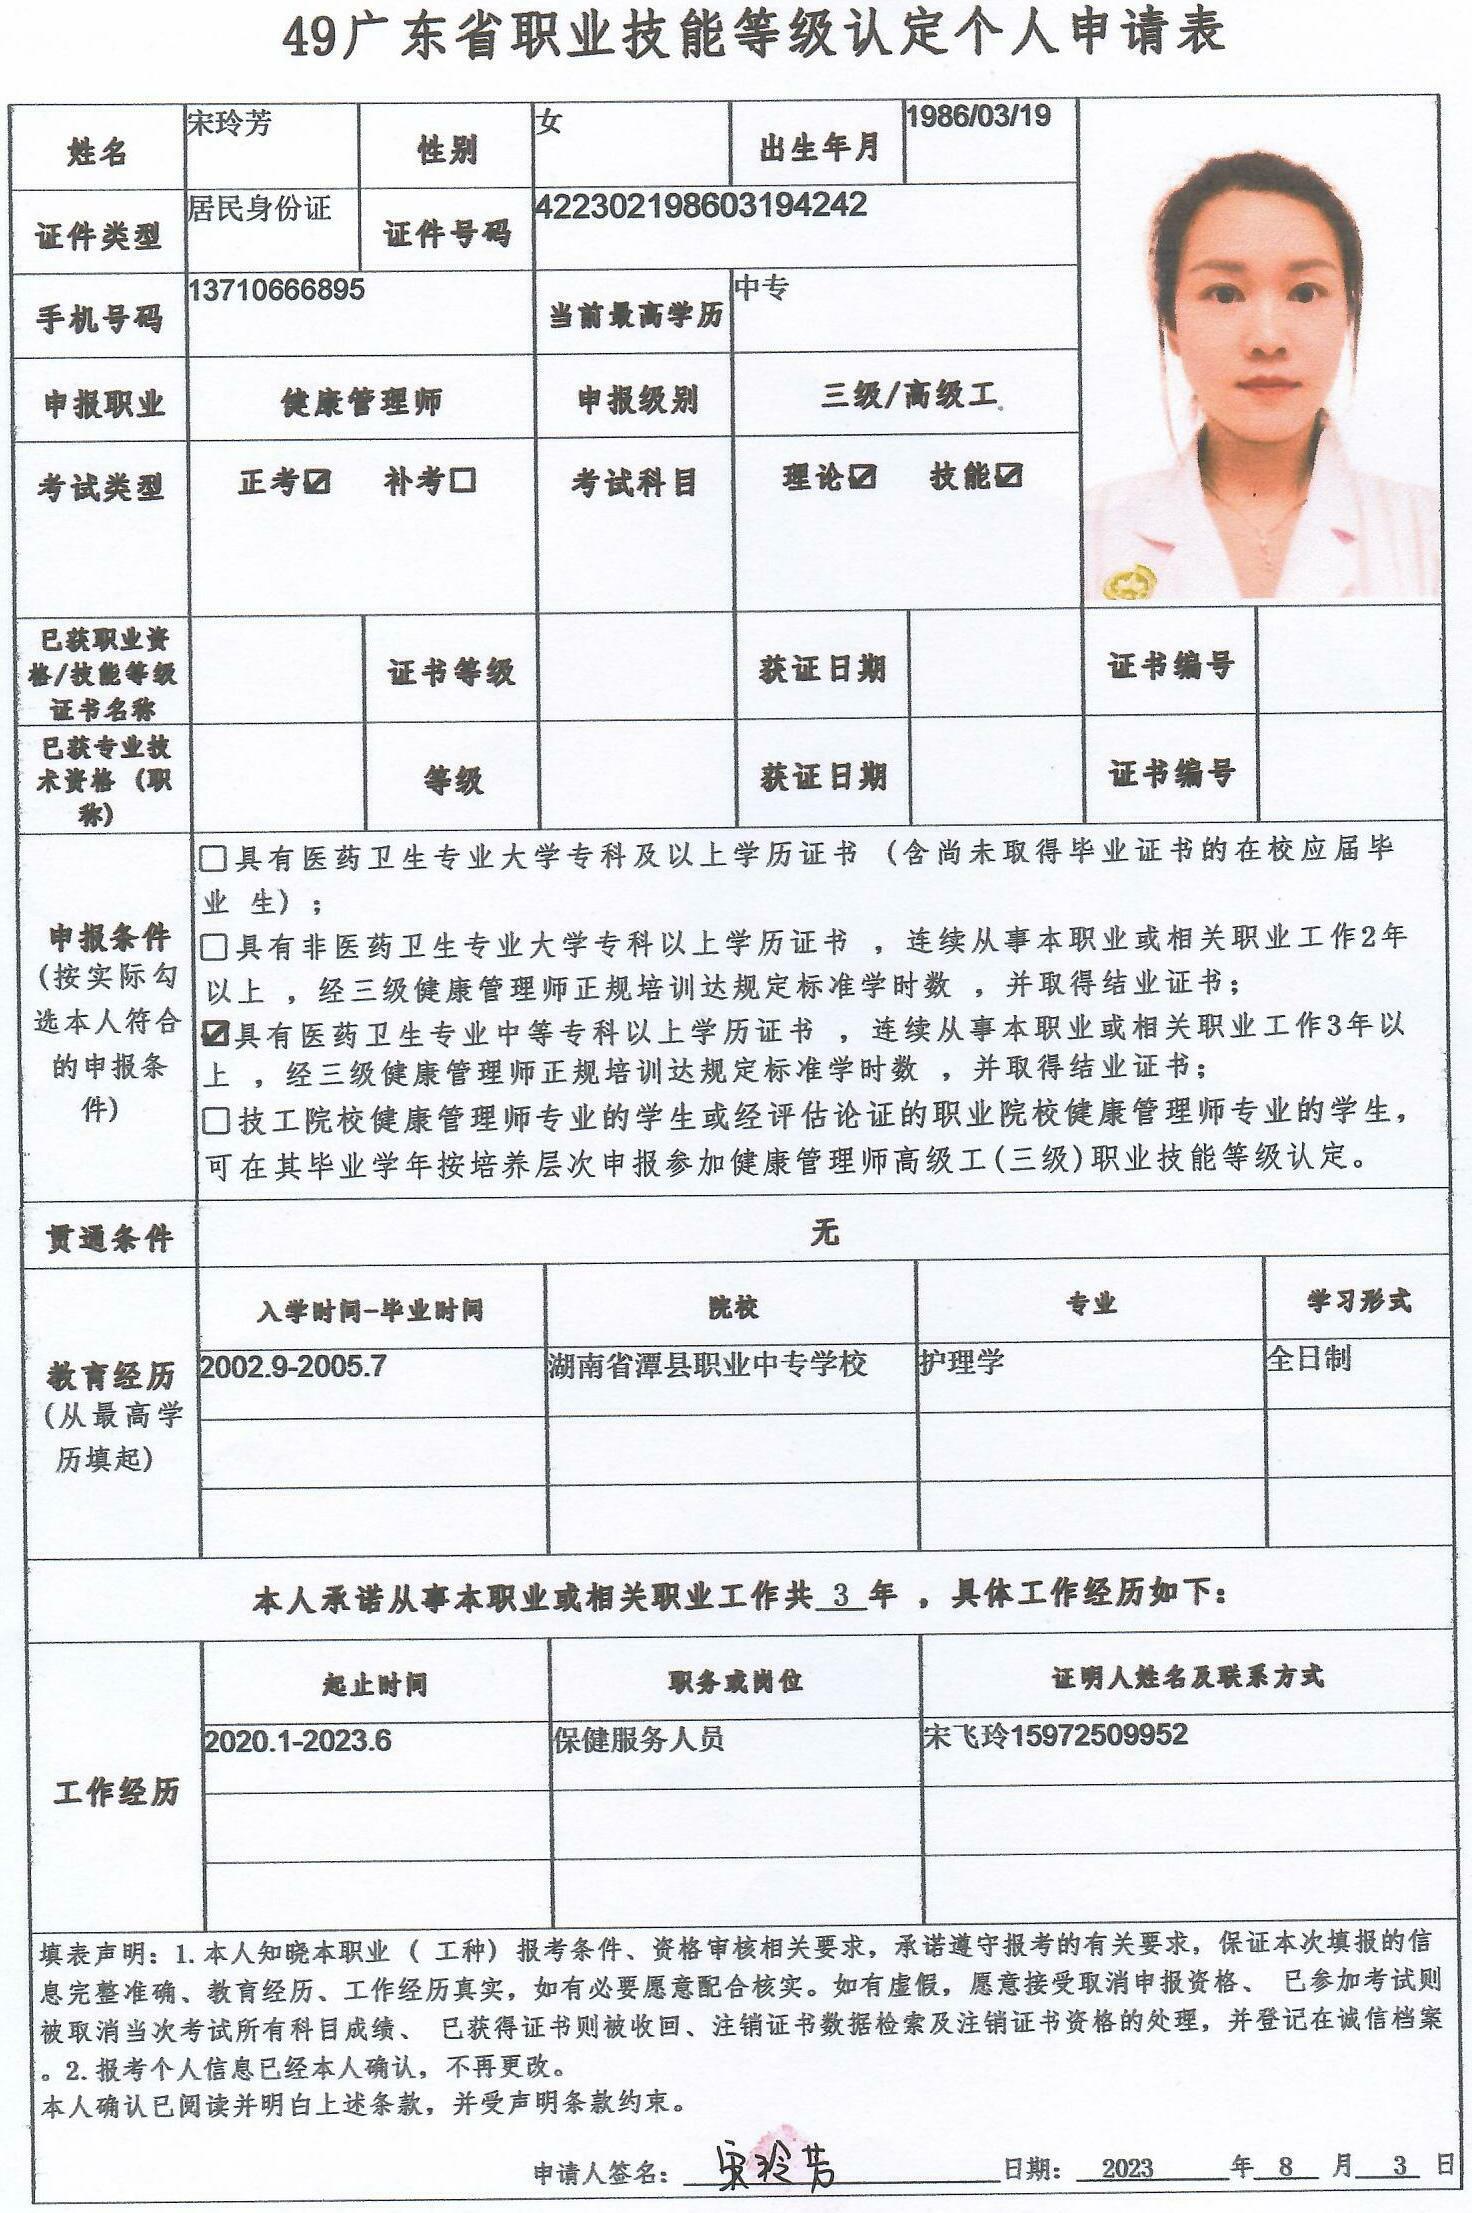 49广东省职业技能等级认定个人申请表
姓名 宋玲芳 性别 女 出生年月 1986/03/19
证件类型 居民身份证 证件号码 422302198603194242
手机号码 13710666895 当前最高学历 中专
申报职业 健康管理师 申报级别 三级/高级工
考试类型 正考☑ 补考☐ 考试科目 理论☑ 技能☑
已获职业资
格/技能等级 证书等级 获证日期 证书编号
证书名称
已获专业技
术资格（职 等级 获证日期 证书编号
称）
申报条件
(按实际勾
选本人符合
的申报条
件)
☐具有医药卫生专业大学专科及以上学历证书（含尚未取得毕业证书的在校应届毕
业 生）；
☐具有非医药卫生专业大学专科以上学历证书 ，连续从事本职业或相关职业工作2年
以上 ，经三级健康管理师正规培训达规定标准学时数 ，并取得结业证书；
☑具有医药卫生专业中等专科以上学历证书 ，连续从事本职业或相关职业工作3年以
上 ，经三级健康管理师正规培训达规定标准学时数 ，并取得结业证书；
☐技工院校健康管理师专业的学生或经评估论证的职业院校健康管理师专业的学生，
可在其毕业学年按培养层次申报参加健康管理师高级工(三级)职业技能等级认定。
贯通条件 无
教育经历
(从最高学
历填起)
入学时间-毕业时间 院校 专业 学习形式
2002.9-2005.7 湖南省潭县职业中专学校 护理学 全日制
本人承诺从事本职业或相关职业工作共 3 年 ，具体工作经历如下：
工作经历
起止时间 职务或岗位 证明人姓名及联系方式
2020.1-2023.6 保健服务人员 宋飞玲15972509952
填表声明：1.本人知晓本职业（ 工种）报考条件、资格审核相关要求，承诺遵守报考的有关要求，保证本次填报的信
息完整准确、教育经历、工作经历真实，如有必要愿意配合核实。如有虚假，愿意接受取消申报资格、 已参加考试则
被取消当次考试所有科目成绩、 已获得证书则被收回、注销证书数据检索及注销证书资格的处理，并登记在诚信档案
。2.报考个人信息已经本人确认，不再更改。
本人确认已阅读并明白上述条款，并受声明条款约束。
申请人签名： 宋玲芳 日期： 2023 年 8 月 3 日